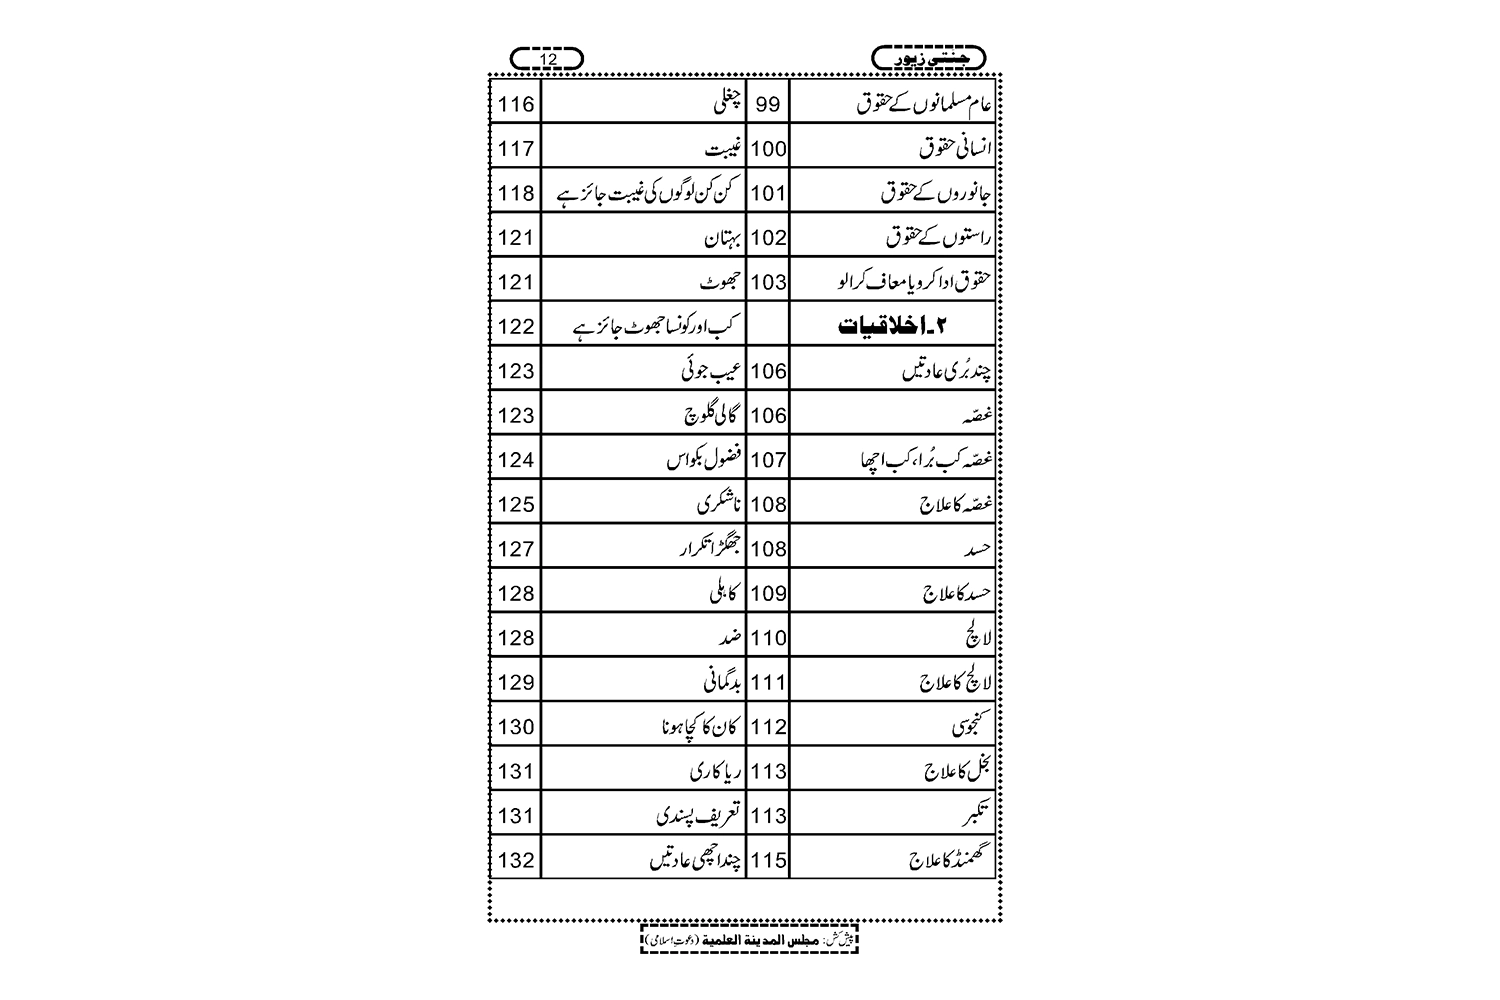 جنتی زیور 12
عام مسلمانوں کے حقوق 99 چغلی 116
انسانی حقوق 100 غیبت 117
جانوروں کے حقوق 101 کن کن لوگوں کی غیبت جائز ہے 118
راستوں کے حقوق 102 بہتان 121
حقوق ادا کرو یا معاف کرالو 103 جھوٹ 121
۲۔اخلاقیات کب اور کونسا جھوٹ جائز ہے 122
چند بُری عادتیں 106 عیب جوئی 123
غصّہ 106 گالی گلوچ 123
غصّہ کب بُرا، کب اچھا 107 فضول بکواس 124
غصّہ کا علاج 108 ناشکری 125
حسد 108 جھگڑا تکرار 127
حسد کا علاج 109 کاہلی 128
لالچ 110 ضد 128
لالچ کا علاج 111 بدگمانی 129
کنجوسی 112 کان کا کچا ہونا 130
بخل کا علاج 113 ریا کاری 131
تکبر 113 تعریف پسندی 131
گھمنڈ کا علاج 115 چند اچھی عادتیں 132
پیش کش: مجلس المدینة العلمیة (دعوتِ اسلامی)